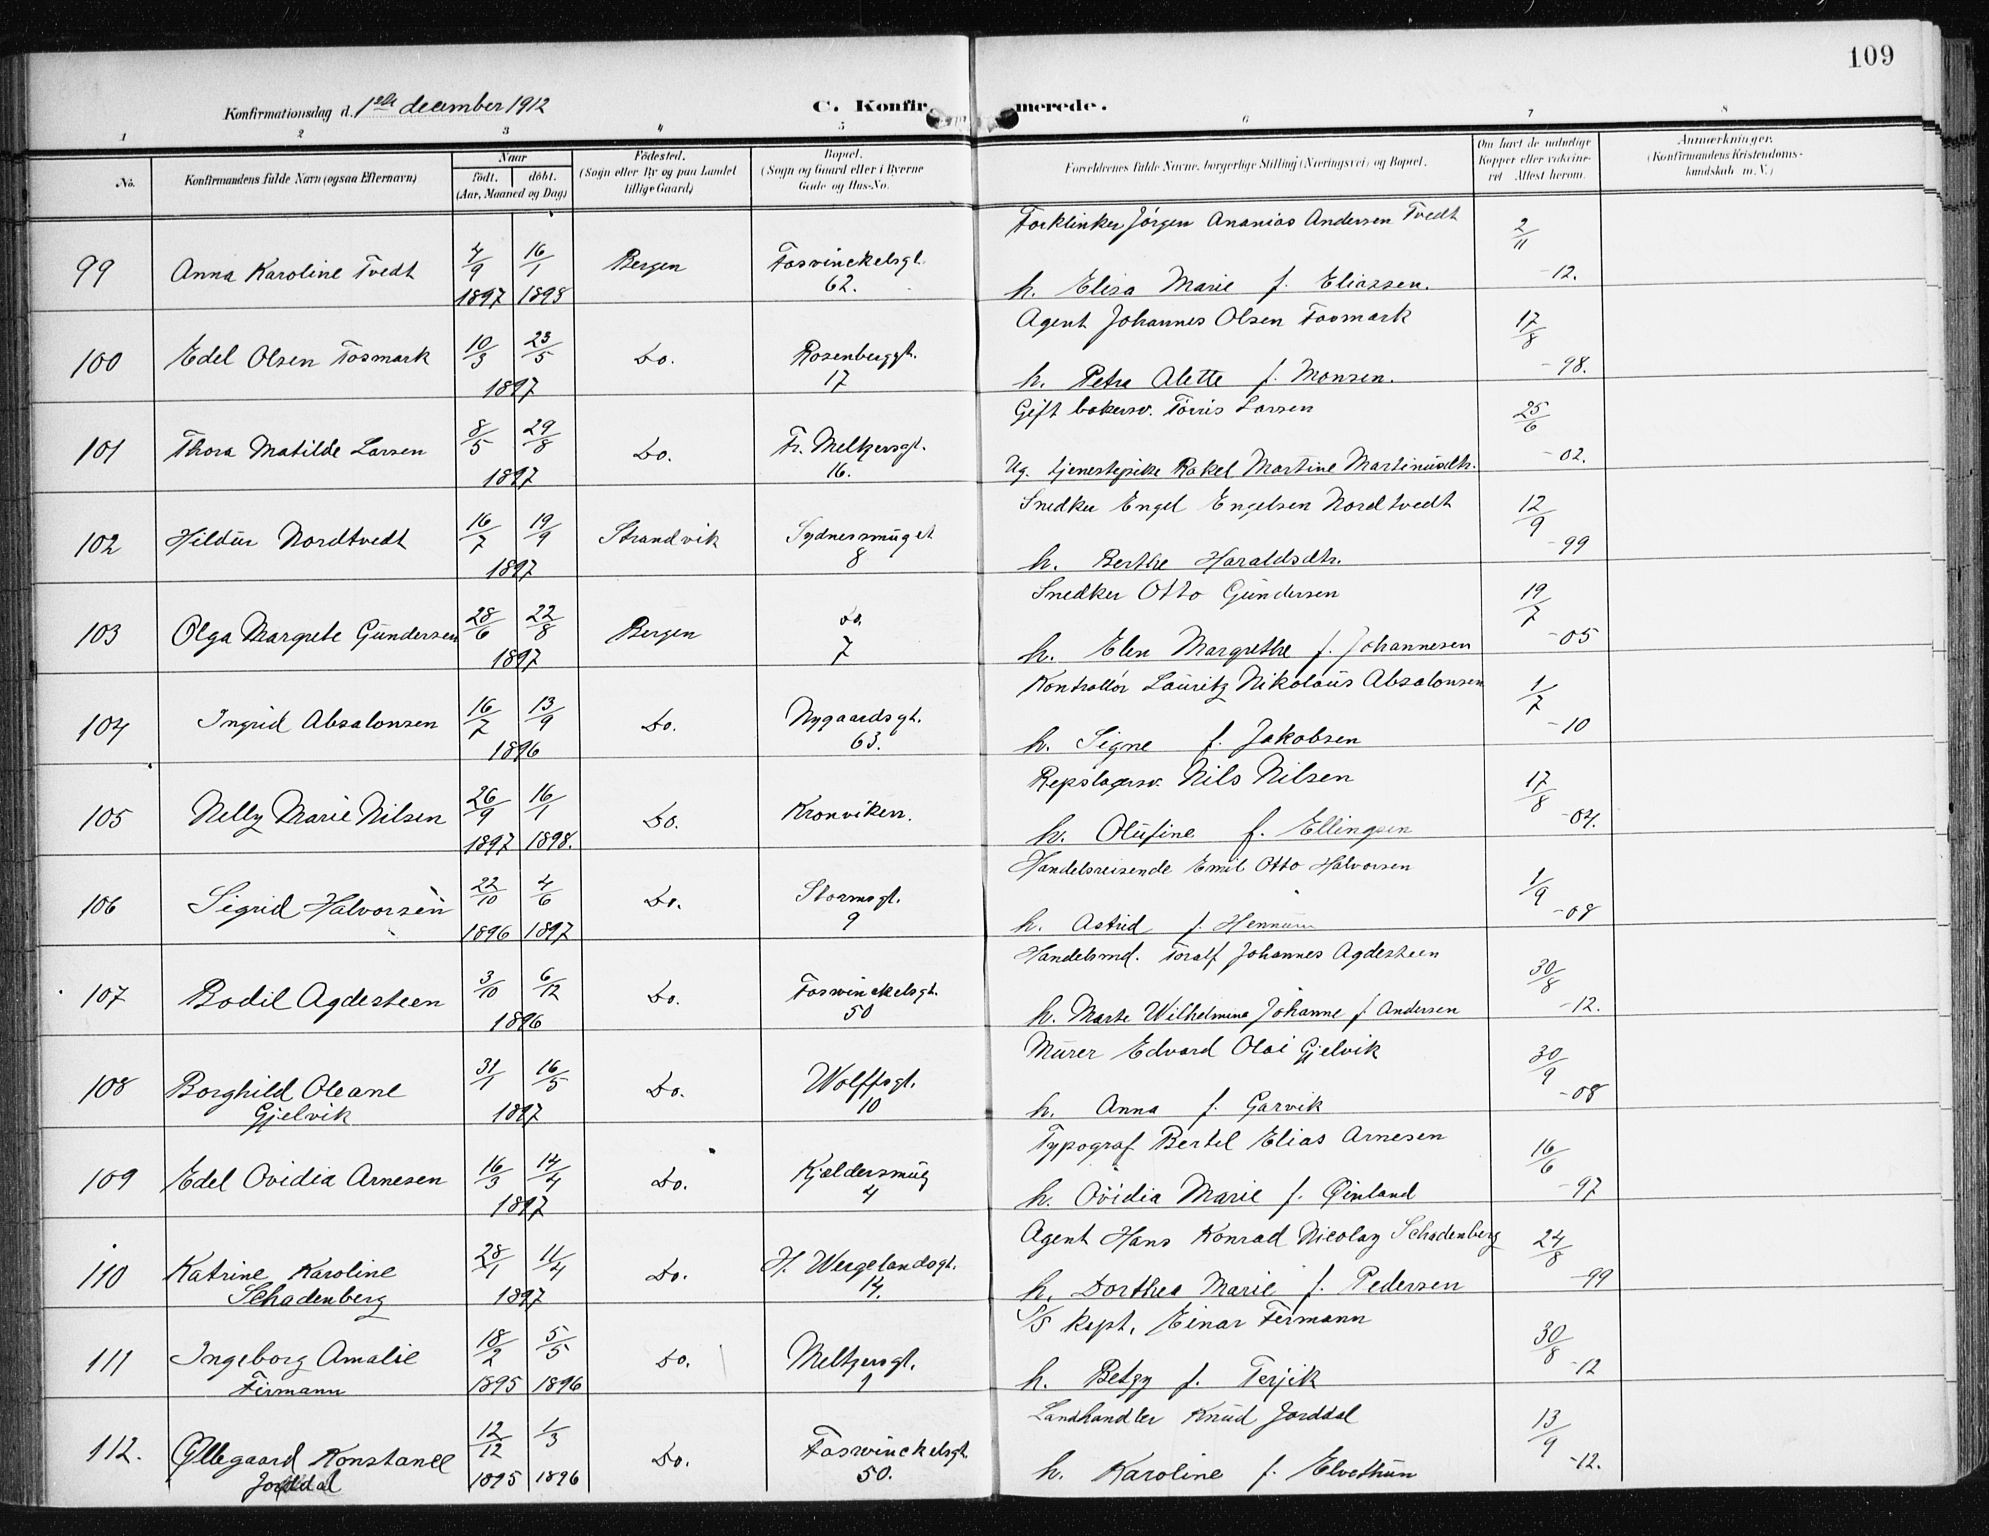 109
Konfirmationsdag d. 1ste december 1912
C. Konfirmerede.
1 2 3 4 5 6 7 8
No.
Konfirmandens fulde Navn (ogsaa Efternavn)
Naar
födt. döbt.
(Aar, Maaned og Dag)
Födested.
(Sogn eller By og paa Landet
tillige Gaard)
Bopæl.
(Sogn og Gaard eller i Byerne
Gade og Hus-No.
Forældrenes fulde Navne, borgerlige Stilling (Næringsvei) og Bopæl.
Om havt de naturlige
Kopper eller vaccine-
ret Attest herom.
Anmærkninger.
(Konfirmandens Kristendoms-
kundskab m. V.)
Jørgen Ananias Andersen Tvedt 2/11
99 Anna Karoline Tvedt 4/9 16/1 Bergen Fosvinckelsgt.
1897 1898 62. h. Elisa Marie f. Eliassen. -12.
Agent Johannes Olsen Fosmark 17/8
100 Edel Olsen Fosmark 10/3 23/5 Do. Rosenberggt.
1897 17 h. Petra Alette f. Monsen. -98.
Gift bakersv. Tørris Larsen 25/6
101 Thora Matilde Larsen 8/5 29/8 Do. Fr. Meltzersgt.
1897 16. Ug. tjenestepike Rakel Martine Martinusdtr. -02.
Snedker Engel Engelsen Nordtvedt 12/9
102 Hildur Nordtvedt 16/7 19/9 Strandvik Sydnessmuget
1897 8 h. Berthe Haraldsdtr. -99
Snedker Otto Gundersen 19/7
103 Olga Margrete Gundersen 28/6 22/8 Bergen Do.
1897 7 h. Elen Margrethe f. Johannesen -05
Kontrollør Lauritz Nikolaus Absalonsen 1/7
104 Ingrid Absalonsen 16/7 13/9 Do. Nygaardsgt.
1896 63. h. Signe f. Jakobsen -10
Repslagersv. Nils Nilsen 17/8
105 Nelly Marie Nilsen 26/9 16/1 Do. Kronviken.
1897 1898. h. Olufine f. Ellingsen -04.
Handelsreisende Emil Otto Halvorsen 1/9
106 Sigrid Halvorsen 22/10 4/6 Do. Stormsgt.
1896 1897 9 h. Astrid f. Hennum -08
Handelsmd. Toralf Johannes Agdesteen 30/8
107 Bodil Agdesteen 3/10 6/12 Do. Foswinckelsgt.
1896 50 h. Marte Wilhelmina Johanne f Andersen -12.
Murer Edvard Olai Gjelvik 30/9
108 Borghild Oleane 31/1 16/5 Do. Wolffsgt.
Gjelvik 1897 10 h. Anna f. Garvik -08
Typograf Bertel Elias Arnesen 16/6
109 Edel Ovidia Arnesen 16/3 14/4 Do. Kjeldersmug
1897 4 h. Ovidia Marie f. Øinland -97
Agent Hans Konrad Nicolay Schadenberg 24/8
110 Katrine Karoline 28/1 11/4 Do. H. Wergelandsgt.
Schadenberg 1897 14. h. Dorthea Marie f. Pedersen -99
S/S kapt. Einar Fermann 30/8
111 Ingeborg Amalie 18/2 5/5 Do. Meltzersgt.
Fermann 1895 1896 1 h. Betzy f. Terjik -12
Landhandler Knud Jorddal 13/9
112. Øllegaard Konstance 12/12 1/3 Do. Foswinckelsgt.
Jorddal 1895 1896 50. h. Karoline f. Elvethun -12.